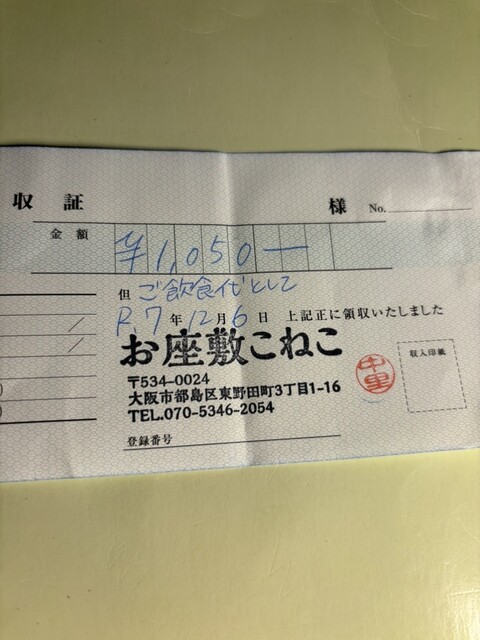 収証 様 No.
金額 ¥1,050ー
但 ご飲食代として
R.7年12月6日 上記正に領収いたしました
お座敷こねこ
〒534-0024
大阪市都島区東野田町3丁目1-16
TEL.070-5346-2054
登録番号
中里
収入印紙